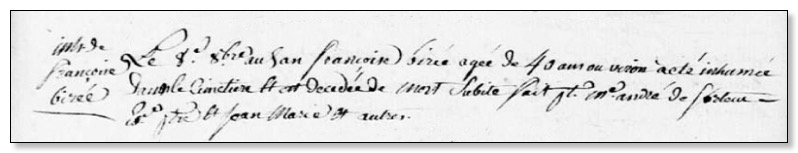 intr de
françoise
birée
Le 8.e 8bre au san françoise birée agée de 40 ans ou viron a eté inhumée
dans le Cimetiere Et est decedée de mort subite fait pt. me. andré de
ptre Et Jean Marie Et autres.